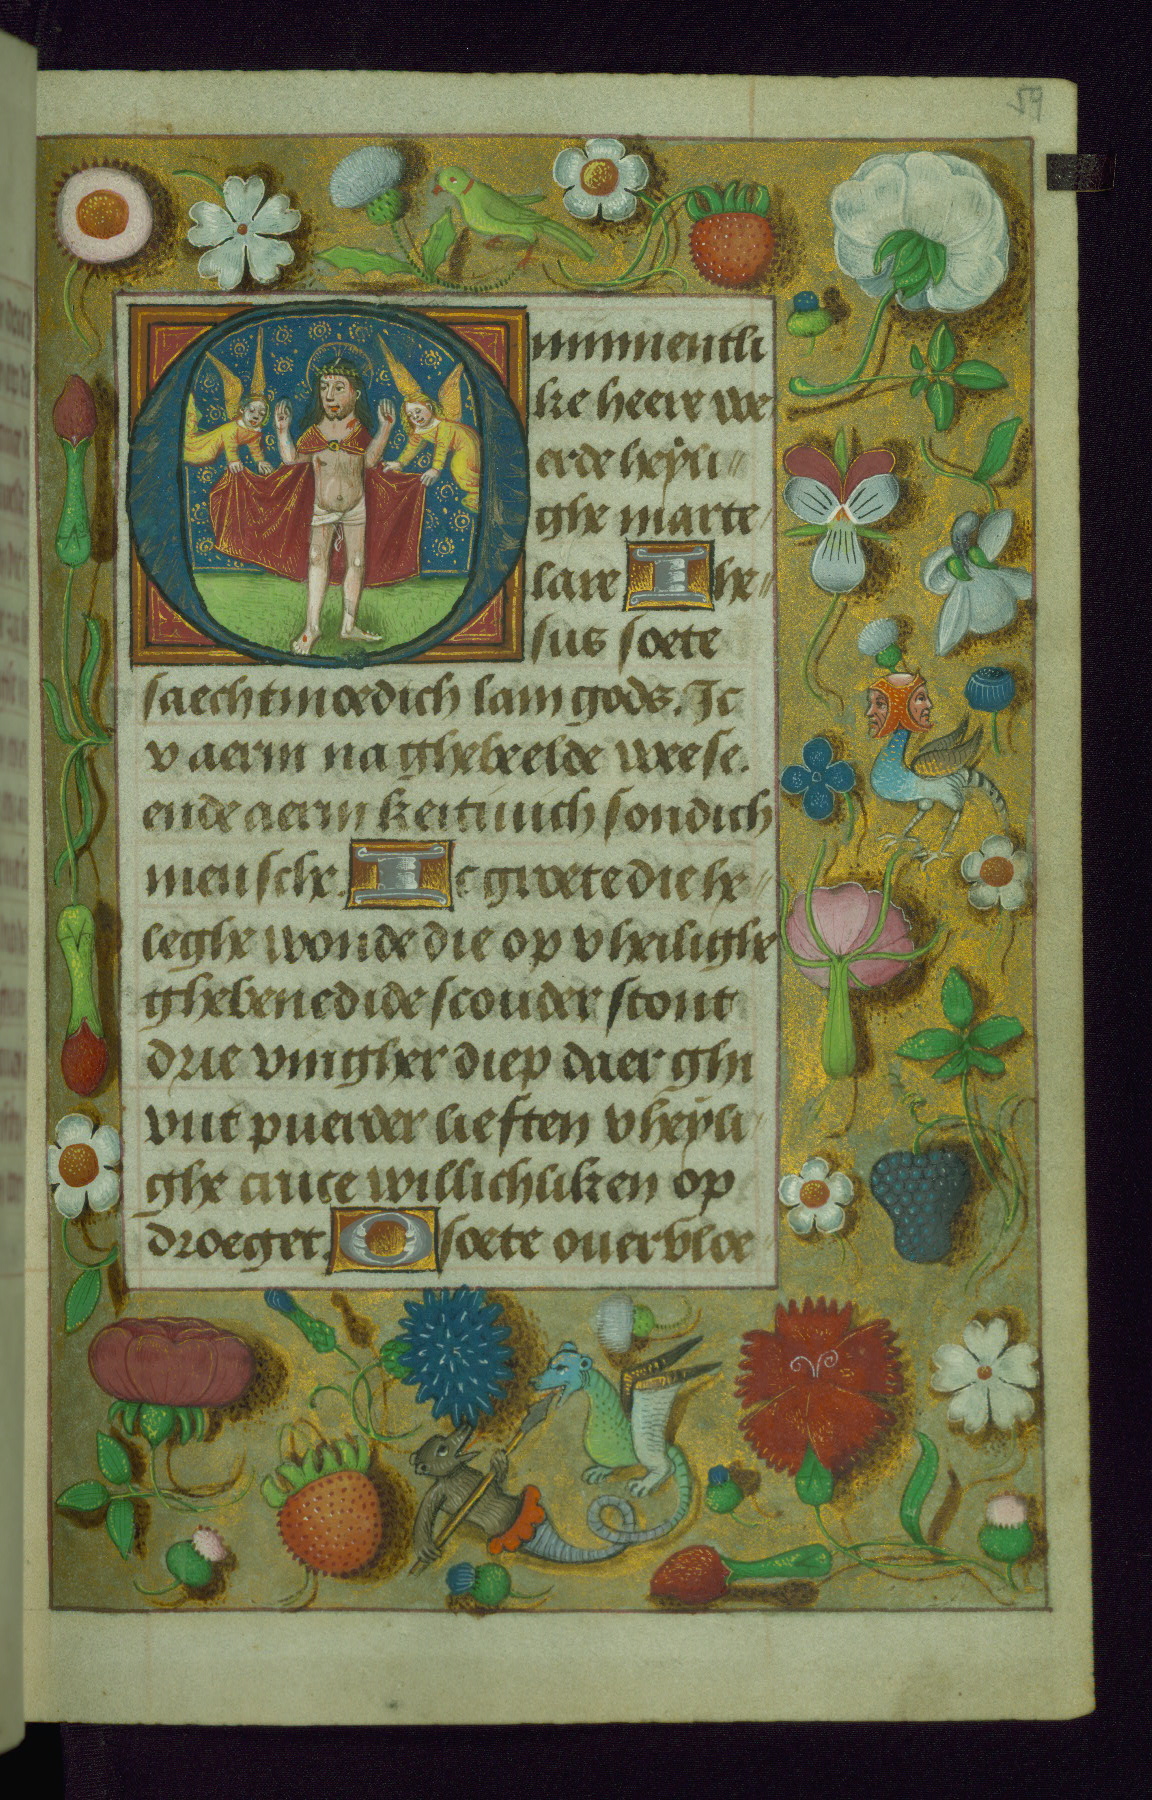 59
O mınnentli
ke heere we
erde heyli
ghe marte
lare Ihe
sus soete
saechtmoedich lam gods. Ic
v aerm na ghebeelde weese.
ende aerm keitiuich sondich
mensche. Ic groete die he
leghe wonde die op v heilighe
ghebenedide scouder stont
drie vingher diep daer ghi
vut puerder lieften v heyli
ghe cruce willichliken op
droeget. O soete ouervloe